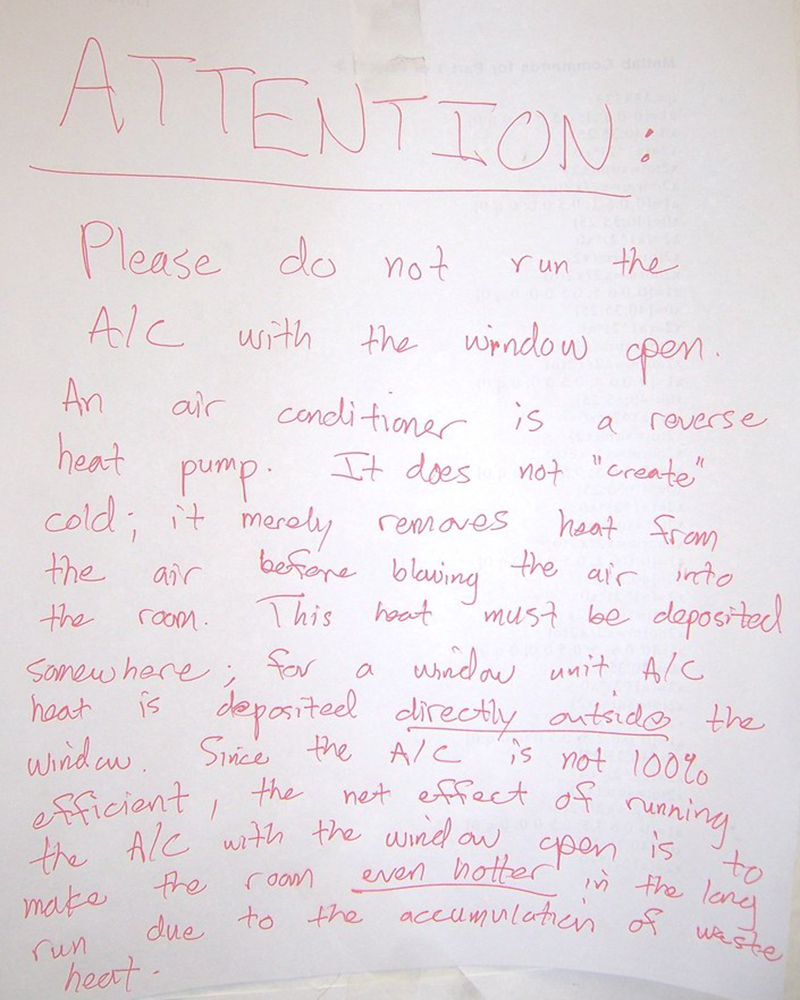 ATTENTION:
Please do not run the
A/C with the window open.
An air conditioner is a reverse
heat pump. It does not "create"
cold; it merely removes heat from
the air before blowing the air into
the room. This heat must be deposited
somewhere; for a window unit A/C
heat is deposited directly outside the
window. Since the A/C is not 100%
efficient, the net effect of running
the A/C with the window open is to
make the room even hotter in the long
run due to the accumulation of waste
heat.